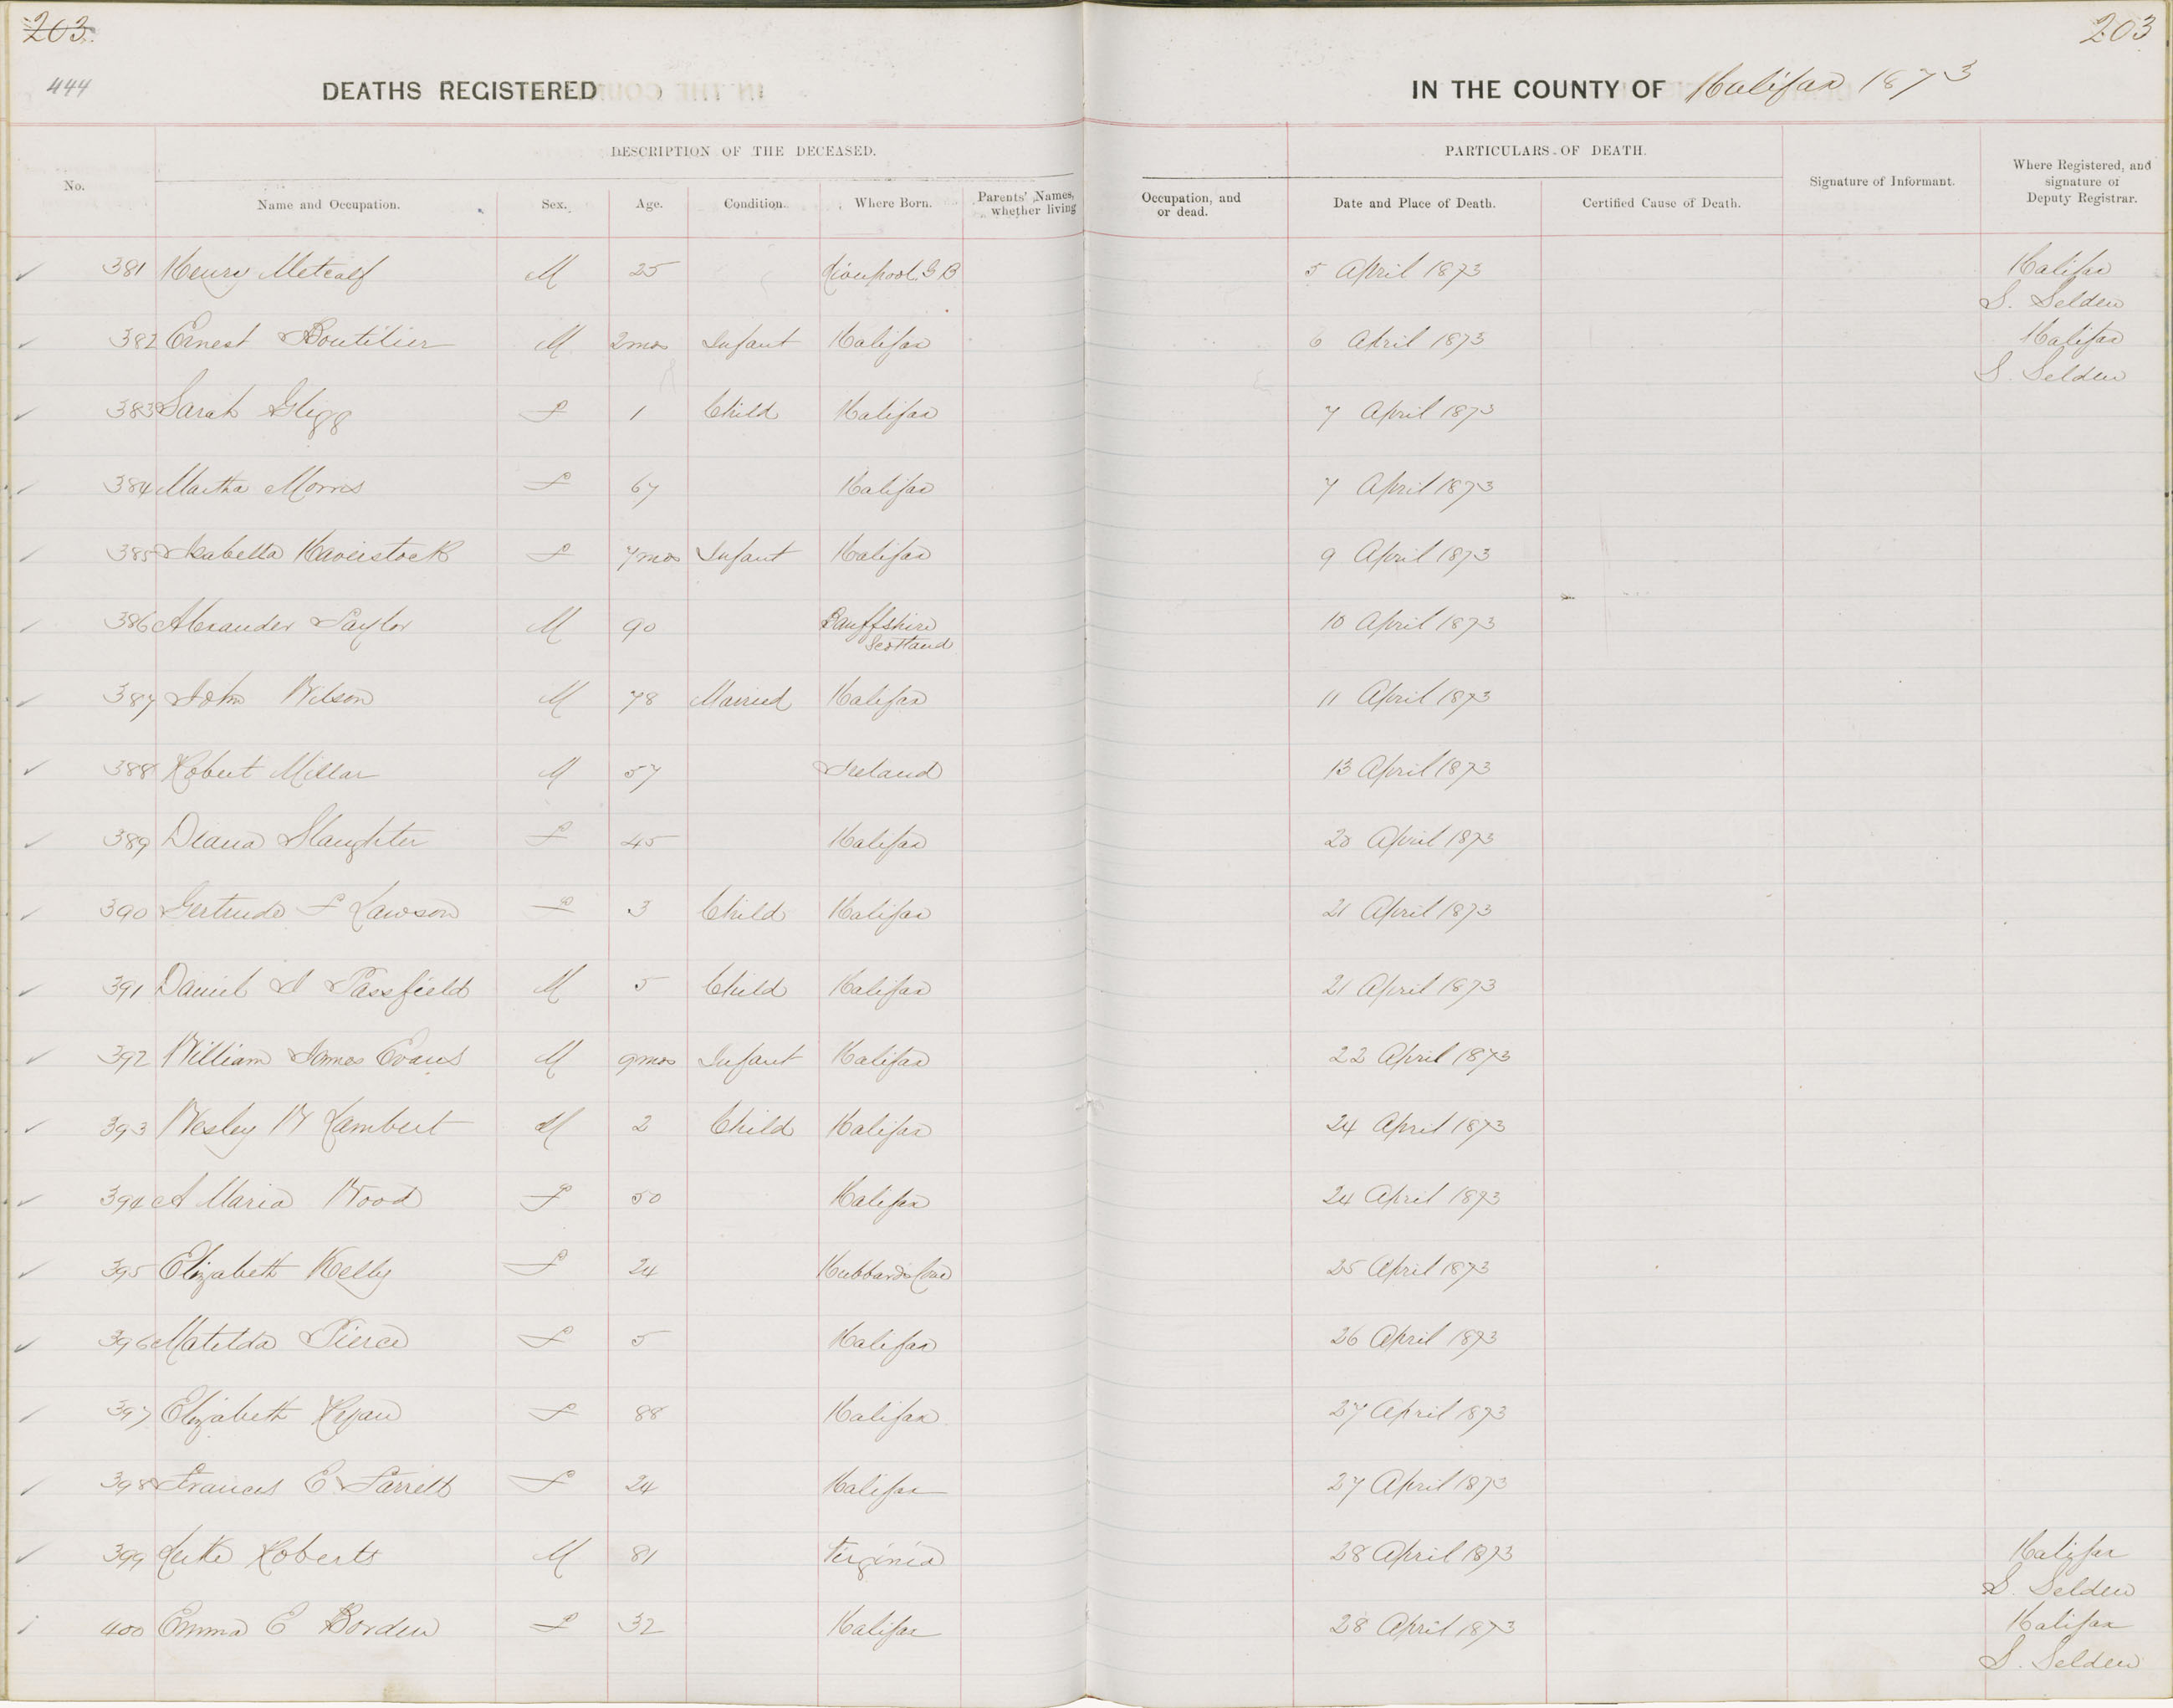 203.
203
444
DEATHS REGISTERED
IN THE COUNTY OF Halifax 1873
DESCRIPTION OF THE DECEASED.
PARTICULARS OF DEATH.
No.
Name and Occupation.
Sex.
Age.
Condition.
Where Born.
Parents' Names, whether living
Occupation, and or dead.
Date and Place of Death.
Certified Cause of Death.
Signature of Informant.
Where Registered, and signature of Deputy Registrar.
381 Henry Metcalf M 25 Liverpool G B 5 April 1873 Halifax
S. Selden
382 Ernest Boutilier M 2mos Infant Halifax 6 April 1873 Halifax
S. Selden
383 Sarah Gligg F 1 Child Halifax 7 April 1873
384 Martha Morris F 67 Halifax 7 April 1873
385 Isabella Haverstock F 7mos Infant Halifax 9 April 1873
386 Alexander Taylor M 90 Banffshire 10 April 1873
Scotland
387 John Wilson M 78 Married Halifax 11 April 1873
388 Robert Millar M 57 Ireland 13 April 1873
389 Diana Slaughter F 45 Halifax 20 April 1873
390 Gertrude F Lawson F 3 Child Halifax 21 April 1873
391 Daniel J Passfield M 5 Child Halifax 21 April 1873
392 William James Evans M 9mos Infant Halifax 22 April 1873
393 Wesley W Lambert M 2 Child Halifax 24 April 1873
394 A Maria Wood F 50 Halifax 24 April 1873
395 Elizabeth Kelly F 24 Hubbards Cove 25 April 1873
396 Matilda Pierce F 5 Halifax 26 April 1873
397 Elizabeth Ryan F 88 Halifax 27 April 1873
398 Frances E Tarrell F 24 Halifax 27 April 1873
399 Luke Roberts M 81 Virginia 28 April 1873 Halifax
S. Selden
400 Emma E Borden F 32 Halifax 28 April 1873 Halifax
S. Selden